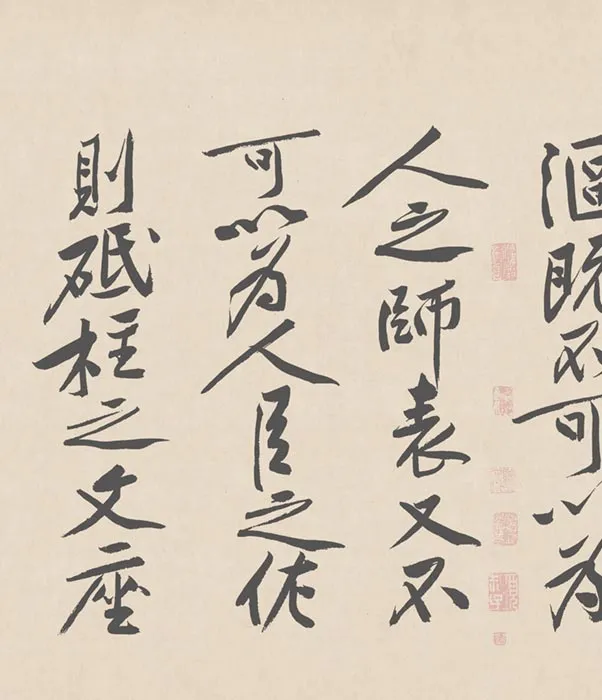 漚既不可以為
人之師表又不
可以為人臣之佐
則砥柱之文座